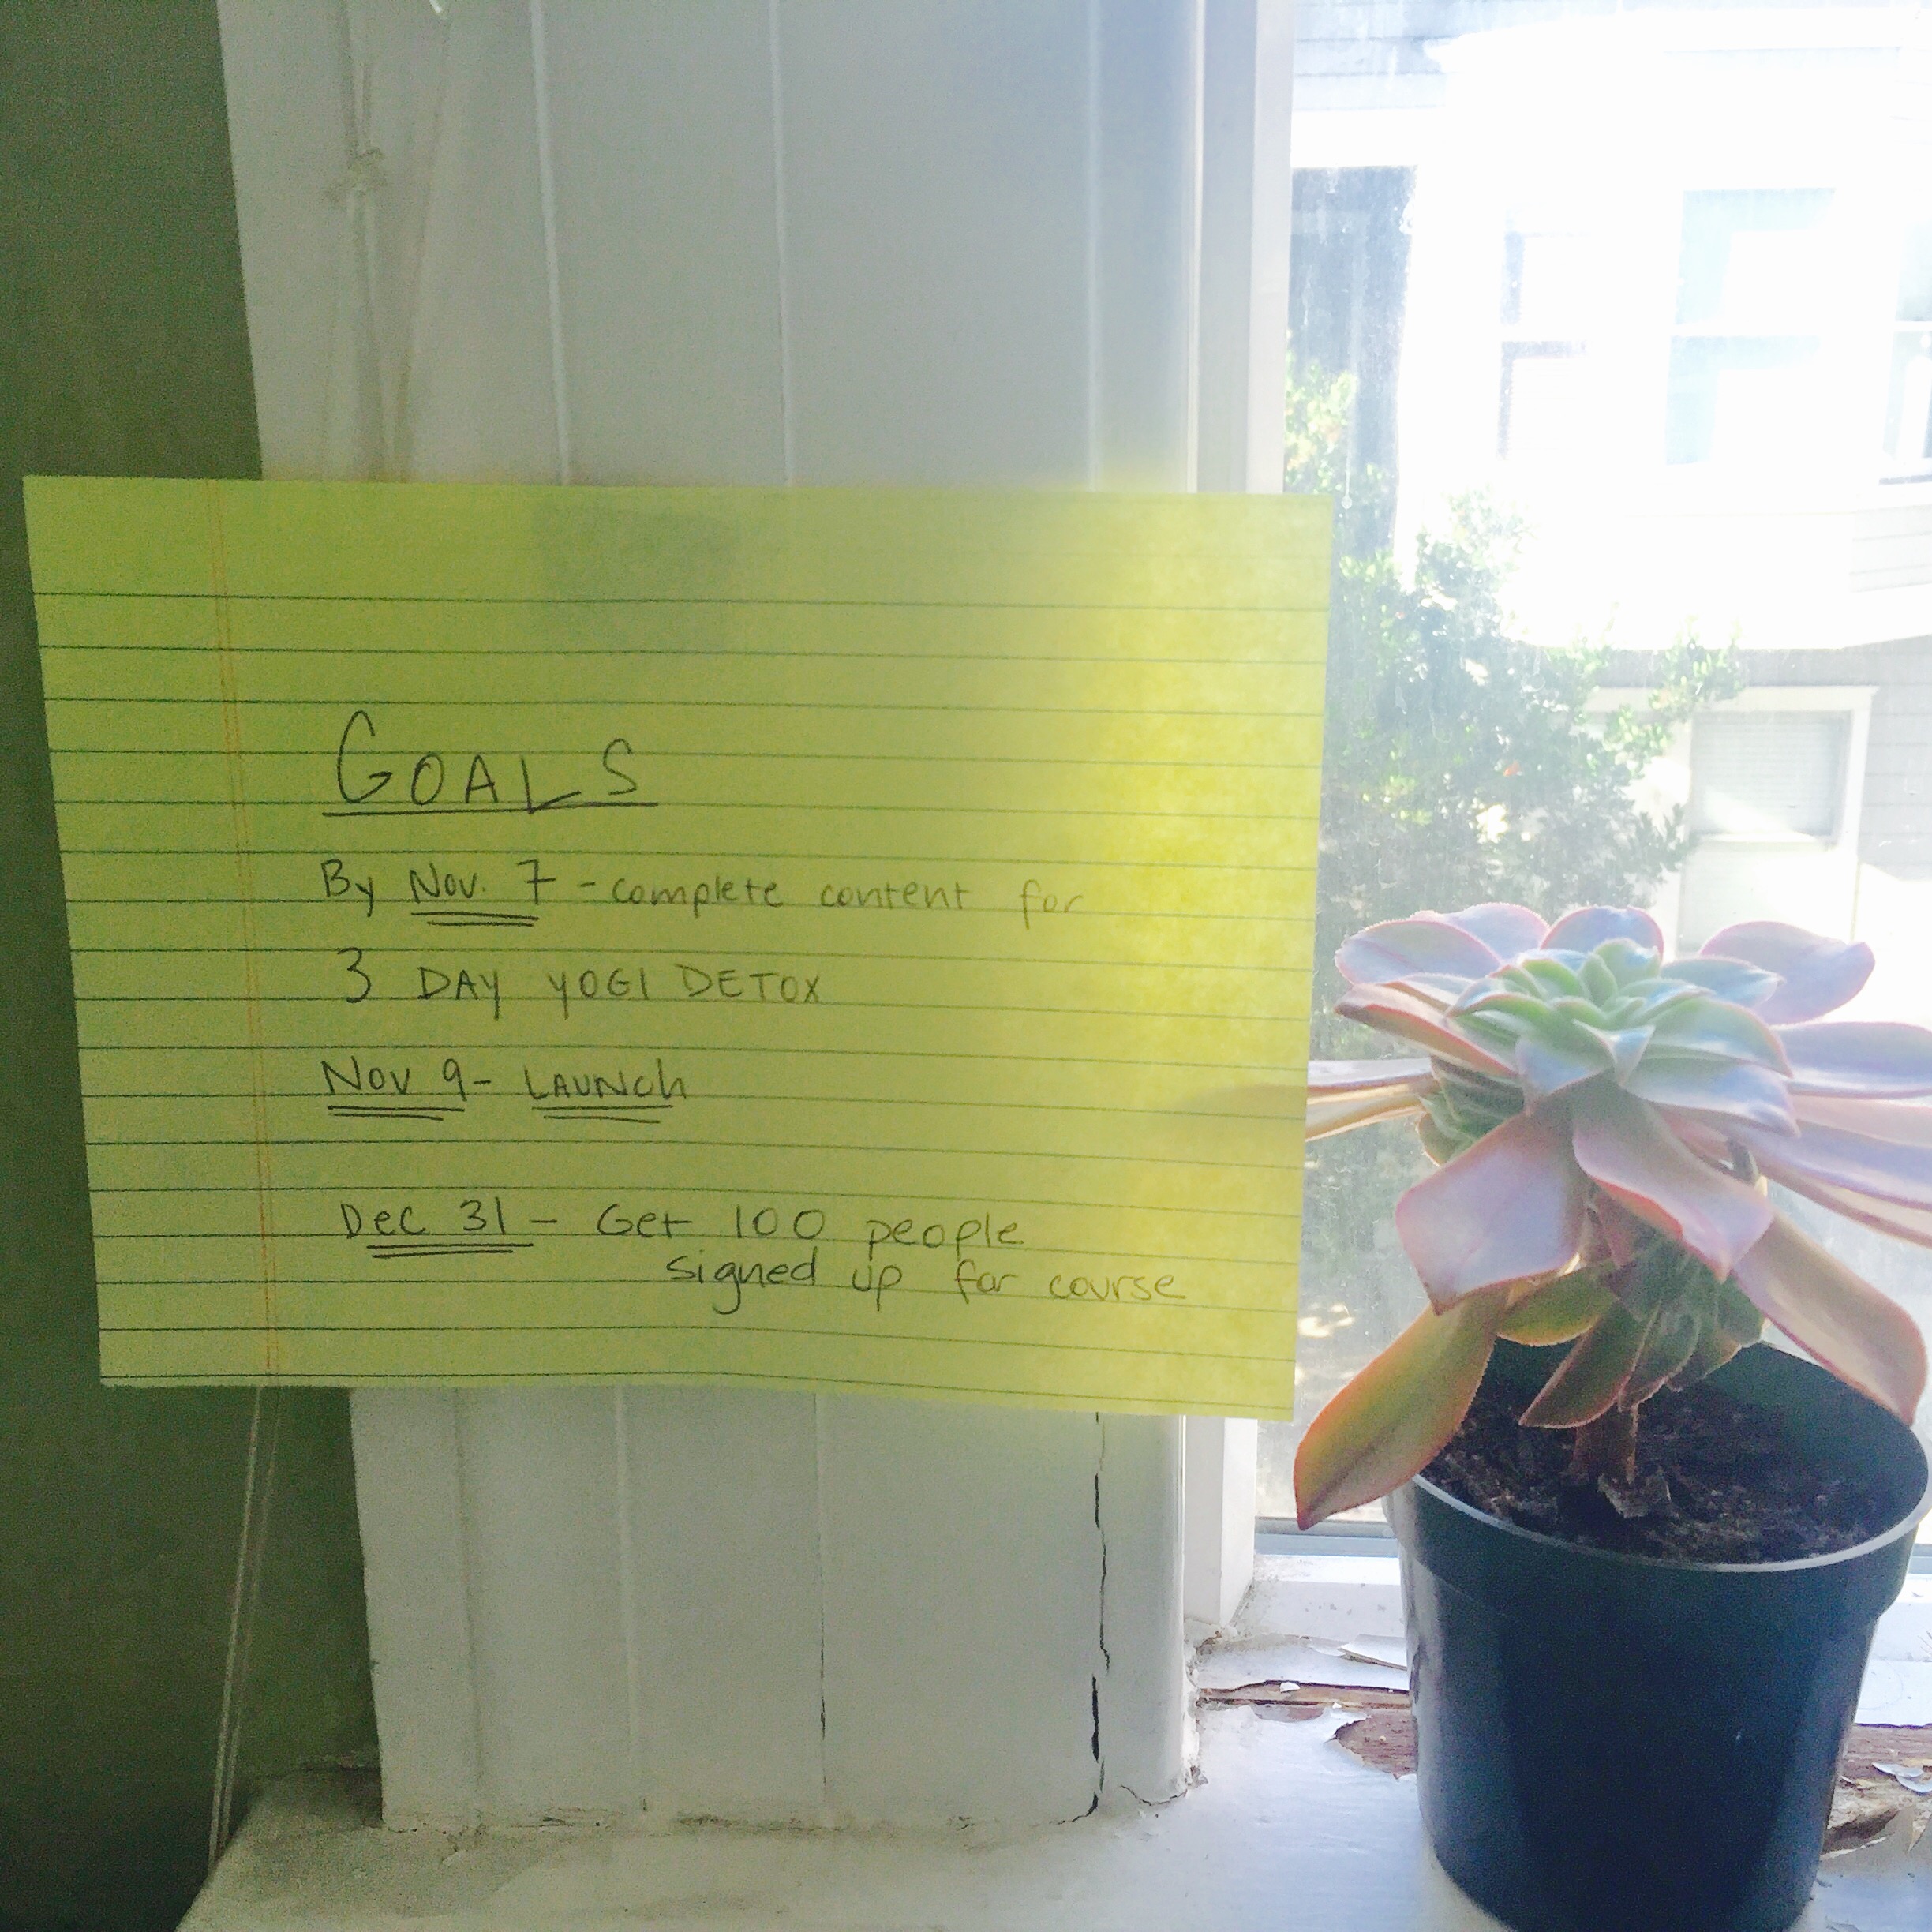 GOALS
By Nov. 7 - complete content for
3 DAY YOGI DETOX
Nov 9 - LAUNCh
Dec 31 - Get 100 people
signed up for course